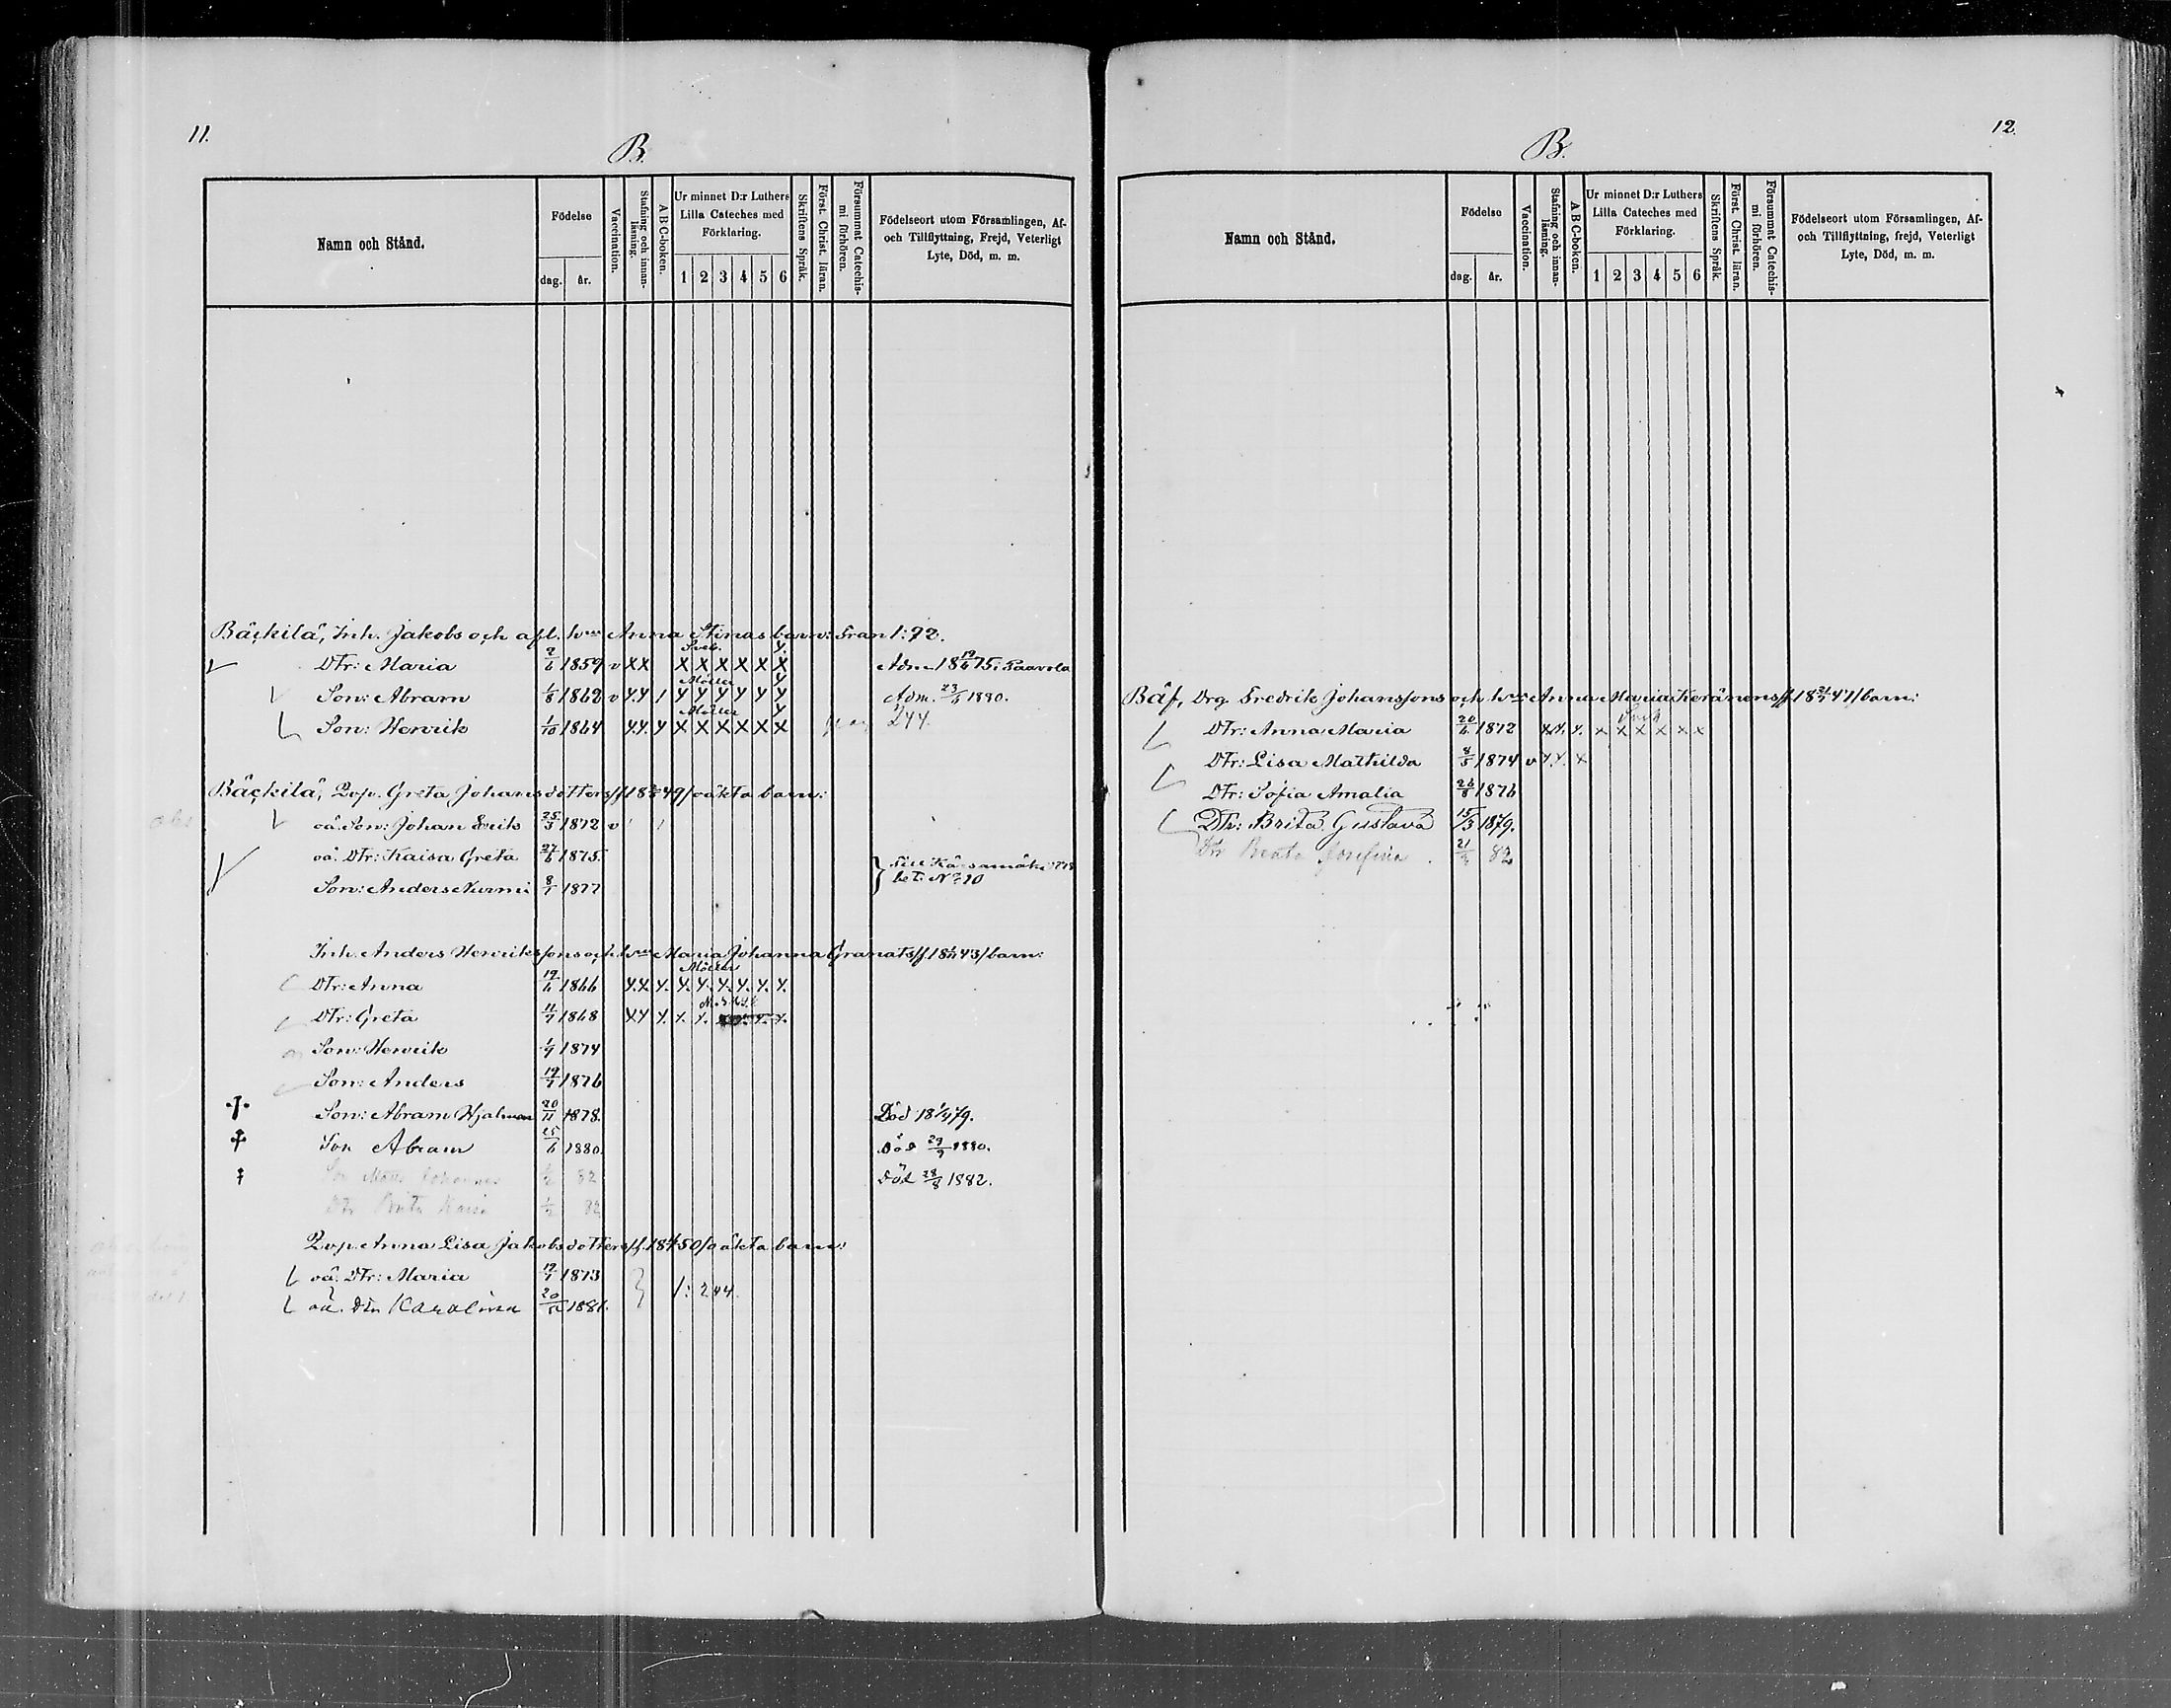 11.
B.
Namn och Stånd.
Födelse
dag. år.
Vaccination.
Stafning och innanläsning.
A B C-boken.
Ur minnet D:r Luthers
Lilla Cateches med
Förklaring.
1 2 3 4 5 6
Skriftens Språk.
Först. Christ. läran.
Försummat Catechismi förhören.
Födelseort utom Församlingen, Af-
och Tillflyttning, Frejd, Veterligt
Lyte, Död, m. m.
Bäckilä, Inh. Jakobs och afl. hu Anna Stinas barn: Från 1:92.
Dtr: Maria 2/6 1859 v X X X X X X X X Adm. 18 19/6 75 i Paavola
Möller
Son: Abram 1/8 1862 v Y Y 1 Y Y Y Y Y Y Adm. 23/5 1880.
Möller
Son: Henrik 1/10 1864 Y. Y. Y X X X X X X 244.
Bäckilä, Pop. Greta Johansdotters /f. 18 49/ oäkta barn:
oä. Son: Johan Erik 25/3 1872 v
oä. Dtr: Kaisa Greta 27/6 1875.
Son: Anders Nurmi 8/1 1877
till Kärsämäki 1878
bet. No 10
Inh. Anders Henrikssons och hu Maria Johanna Granats /f. 18 43/ barn:
Möller
Dtr: Anna 19/6 1866 Y. X Y. Y. Y. Y. Y. Y. Y.
Dtr: Greta 11/7 1868 X Y Y. Y. Y.
Son: Henrik 1/9 1874
Son: Anders 19/7 1876
Son: Abram Hjalmar 20/11 1878. Död 18 79.
Son Abram 25/6 1880. Död 29/7 1880.
Son Matts Johannes 82 Död 28/8 1882.
Dtr Brita Kaisa 82
Pop. Anna Lisa Jakobsdotters /f. 18 50/ oäkta barn:
oä. Dtr: Maria 19/7 1873
1: 244.
oä. Dtr Karolina 1881.
12.
B.
Namn och Stånd.
Födelse
dag. år.
Vaccination.
Stafning och innanläsning.
A B C-boken.
Ur minnet D:r Luthers
Lilla Cateches med
Förklaring.
1 2 3 4 5 6
Skriftens Språk.
Först. Christ. läran.
Försummat Catechismi förhören.
Födelseort utom Församlingen, Af-
och Tillflyttning, frejd, Veterligt
Lyte, Död, m. m.
Bäf, Drg. Fredrik Johanssons och hu Anna Maria Keränens /f. 18 47/ barn:
Dtr: Anna Maria 20/6 1872 X. X. Y. X X X X X X
Dtr: Lisa Mathilda 8/5 1874 v Y Y. X
Dtr: Sofia Amalia 26/8 1876
Dtr: Brita Gustava 15/3 1879.
Dtr Beata Josefina 82